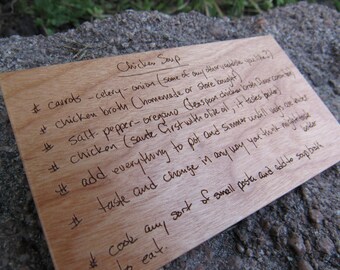 Chicken Soup
# carrots - celery - onion (some of any other veggies you like)
# chicken broth (homemade or store bought)
# salt - pepper - oregano (
# chicken (saute first with olive oil, it tastes better)
# add everything to pot and simmer until
# taste and change in any way you think
# cook any sort of small pasta and add to soup
to eat.